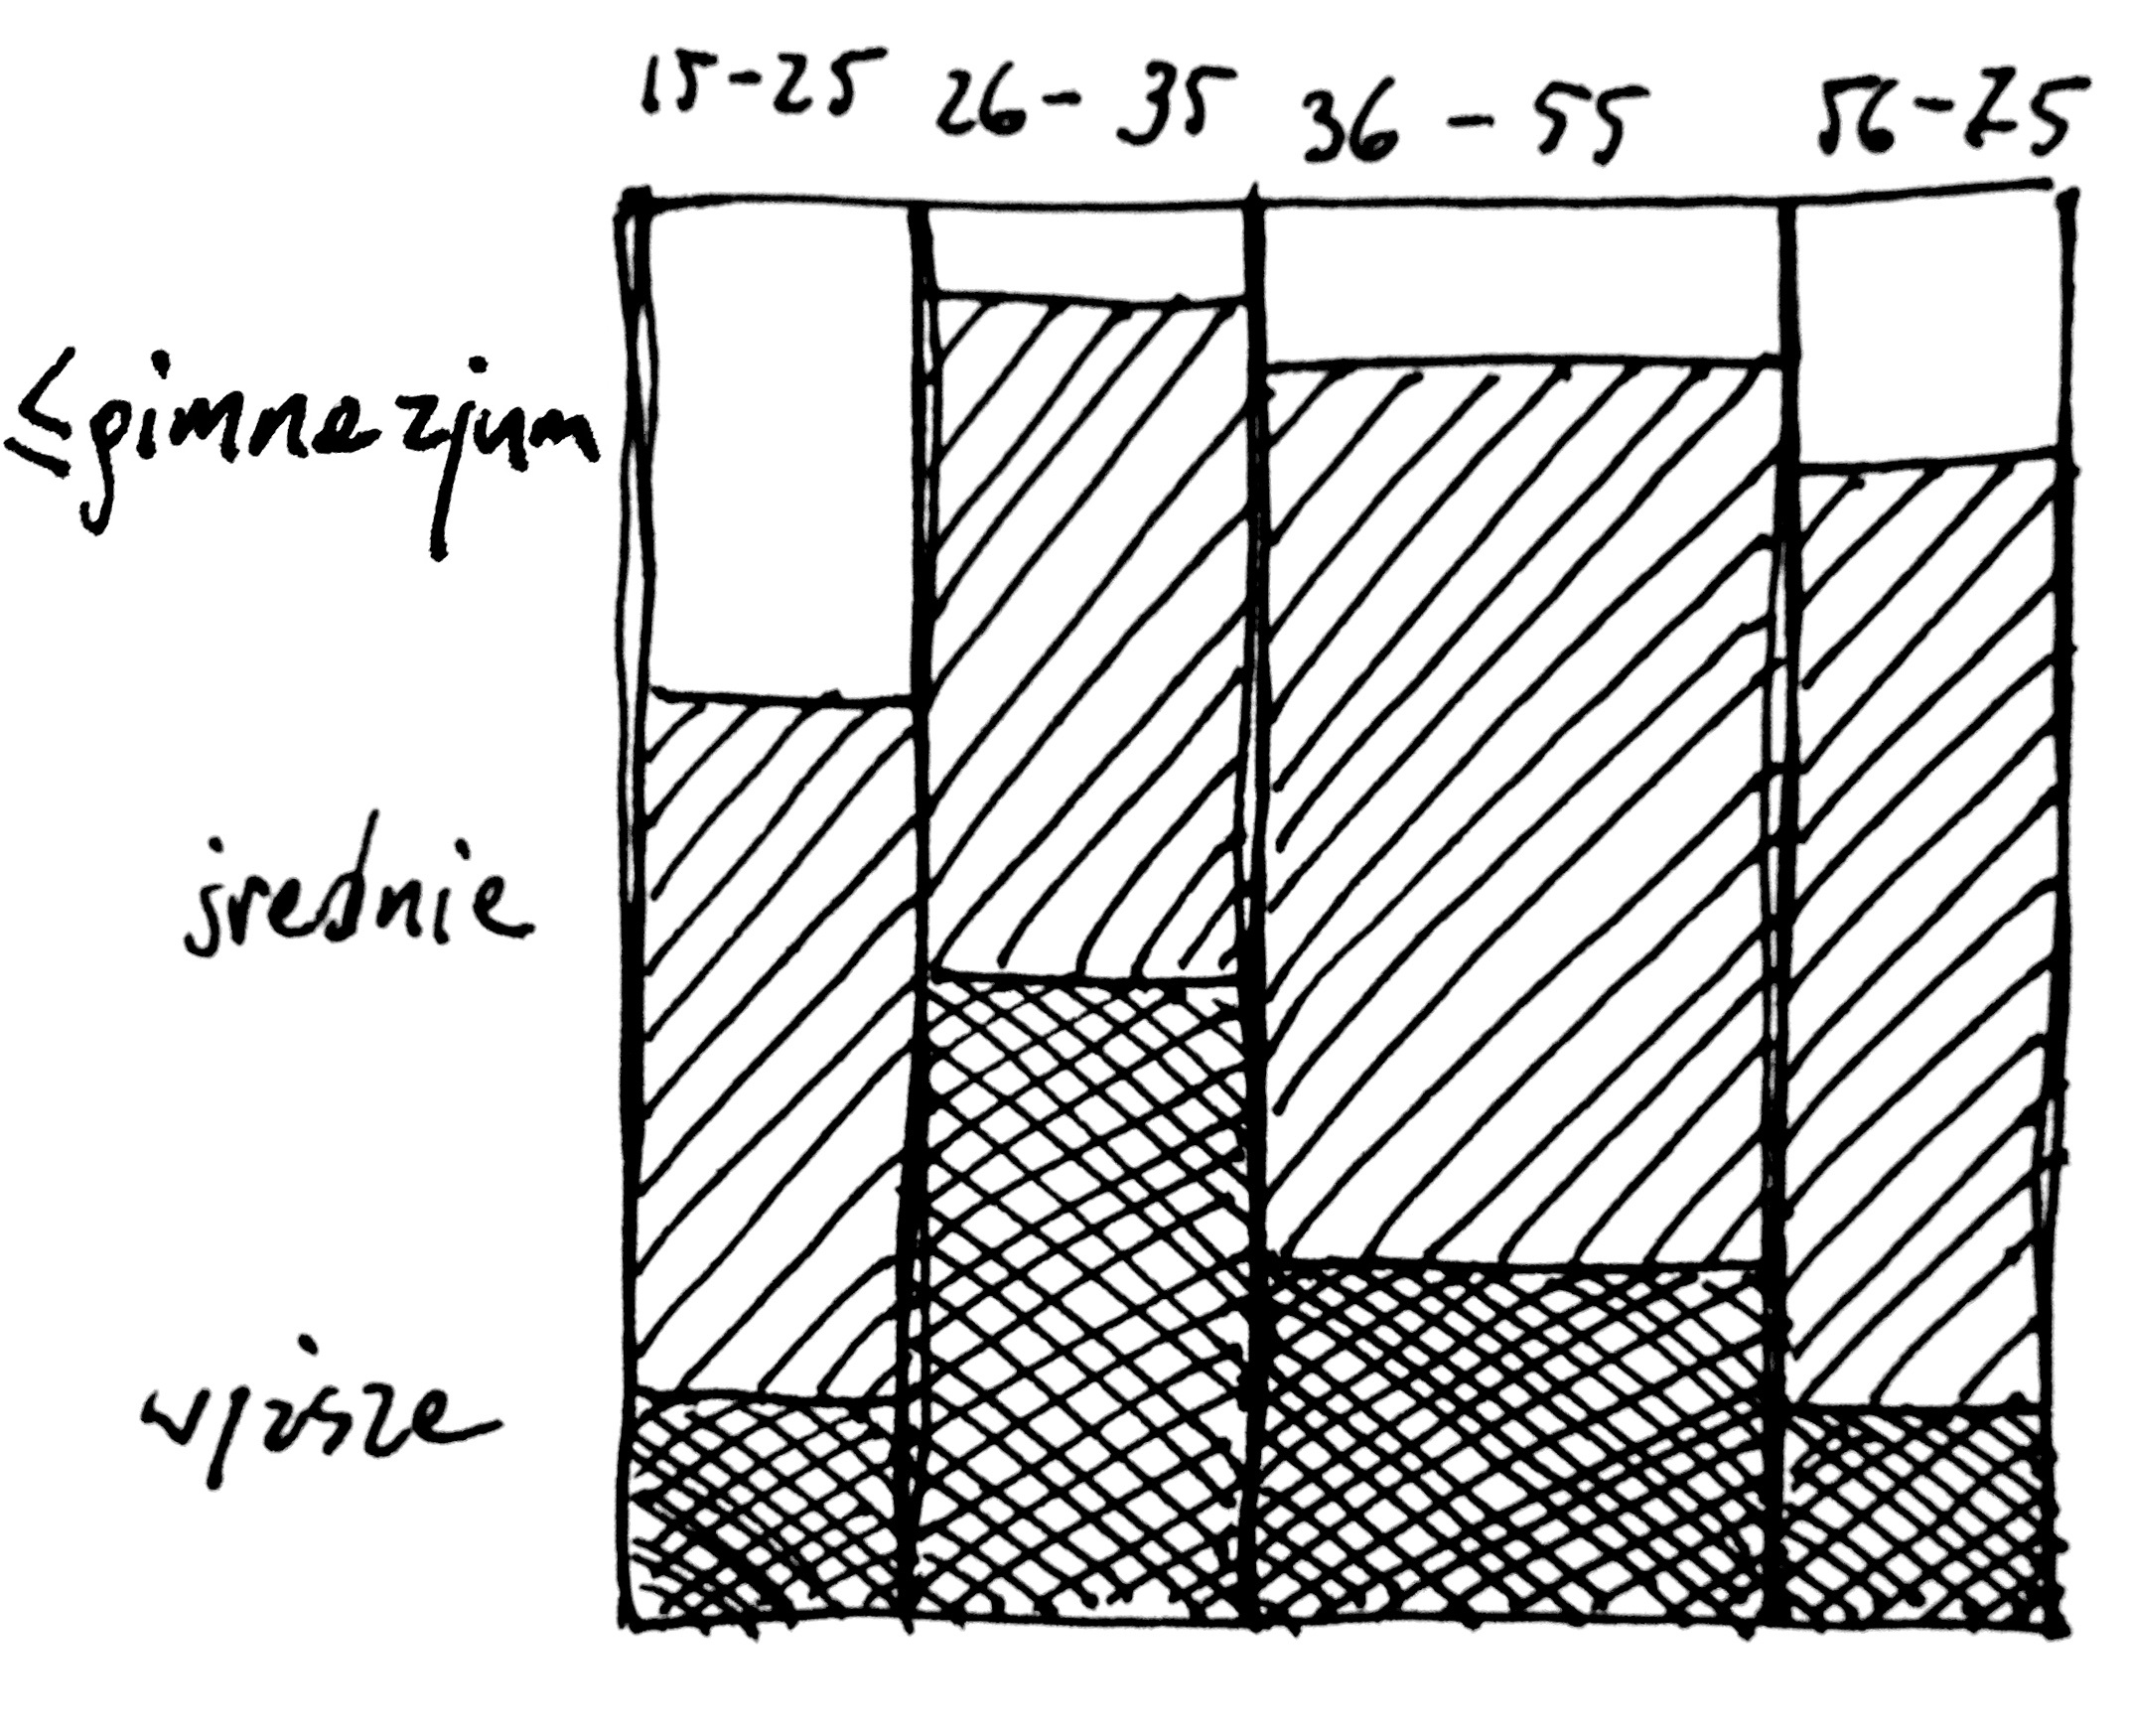 15-25 26-35 36-55 56-75
≤gimnazjum
średnie
wyższe